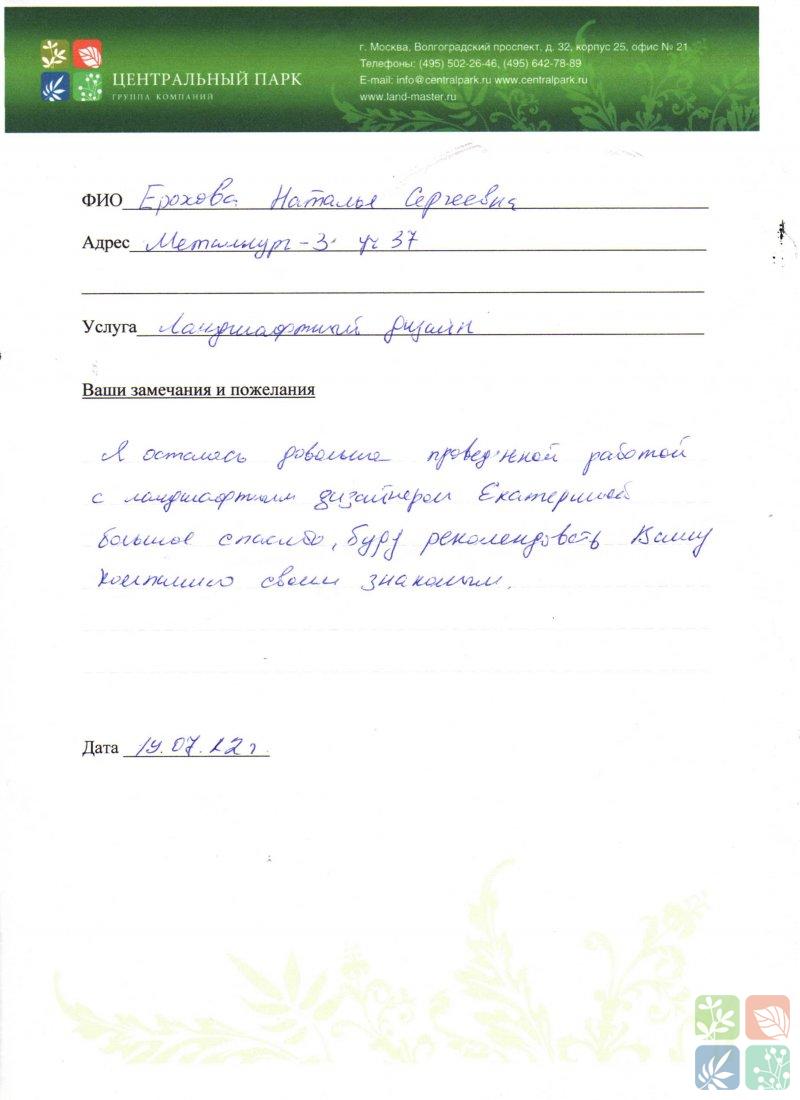 ЦЕНТРАЛЬНЫЙ ПАРК
ГРУППА КОМПАНИЙ
г. Москва, Волгоградский проспект, д. 32, корпус 25, офис № 21
Телефоны: (495) 502-26-46, (495) 642-78-89
E-mail: info@centralpark.ru www.centralpark.ru
www.land-master.ru
ФИО Ерохова Наталья Сергеевна
Адрес Металлург-3 уч 37
Услуга Ландшафтный дизайн
Ваши замечания и пожелания
Я осталась довольна проведённой работой
с ландшафтным дизайнером Екатериной
большое спасибо, буду рекомендовать Вашу
компанию своим знакомым.
Дата 19.07.12 г.